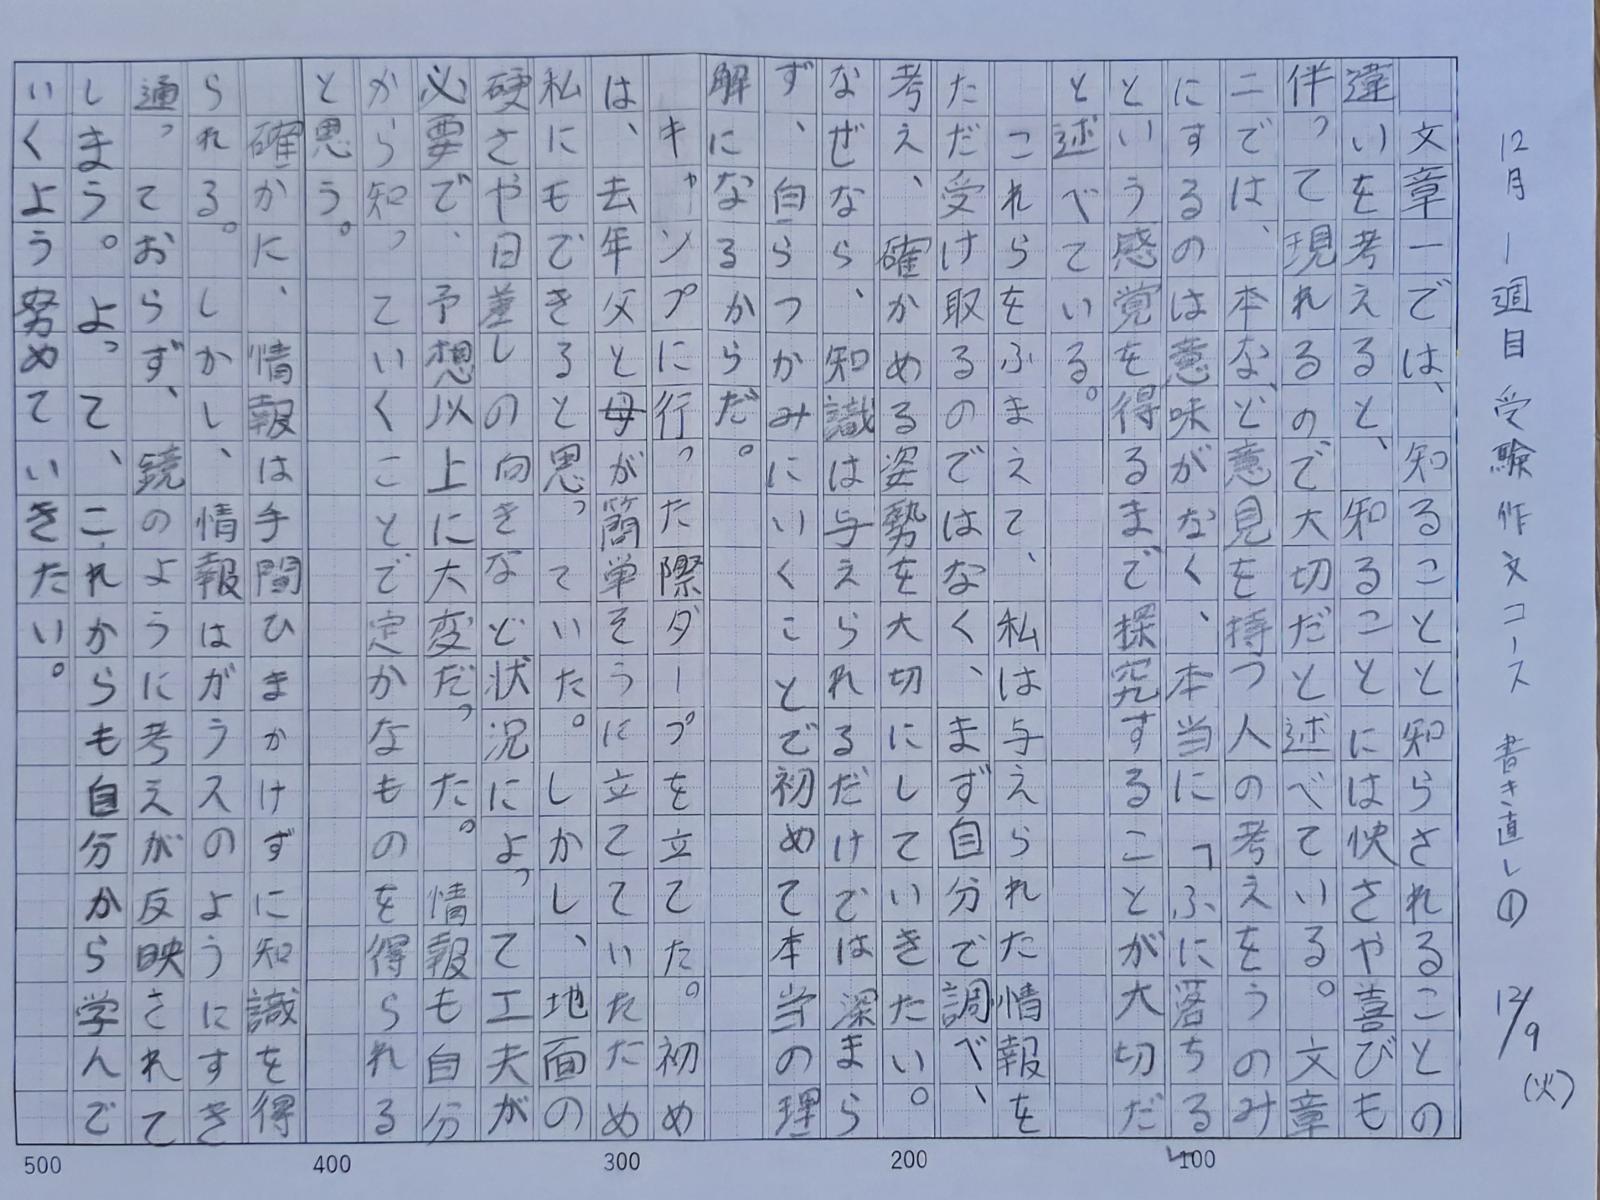 12月 1週目 受験作文コース 書き直しの① 12/9(火)
文章一では、知ることと知らされることの
違いを考えると、知ることには快さや喜びも
伴って現れるので大切だと述べている。文章
二では、本など、意見を持つ人の考えをうのみ
にするのは意味がなく、本当に「ふに落ちる」
という感覚を得るまで探究することが大切だ
と述べている。
これらをふまえて、私は与えられた情報を
ただ受け取るのではなく、まず自分で調べ、
考え、確かめる姿勢を大切にしていきたい。
なぜなら、知識は与えられるだけでは深まら
ず、自らつかみにいくことで初めて本当の理
解になるからだ。
キャンプに行った際タープを立てた。初め
は、去年父と母が簡単そうに立てていたため
私にもできると思っていた。しかし、地面の
硬さや日差しの向きなど状況によって工夫が
必要で、予想以上に大変だった。情報も自分
から知っていくことで定かなものを得られる
と思う。
確かに、情報は手間ひまかけずに知識を得
られる。しかし、情報はガラスのようにすき
通っておらず、鏡のように考えが反映されて
しまう。よって、これからも自分から学んで
いくよう努めていきたい。
100
200
300
400
500